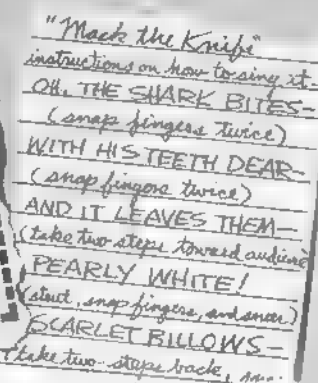 "Mack the Knife"
instructions on how to sing it-
OH, THE SHARK BITES-
(snap fingers twice)
WITH HIS TEETH DEAR-
(snap fingers twice)
AND IT LEAVES THEM-
(take two steps toward audience
PEARLY WHITE!
(strut, snap fingers, and sneer)
SCARLET BILLOWS-
(take two steps back,